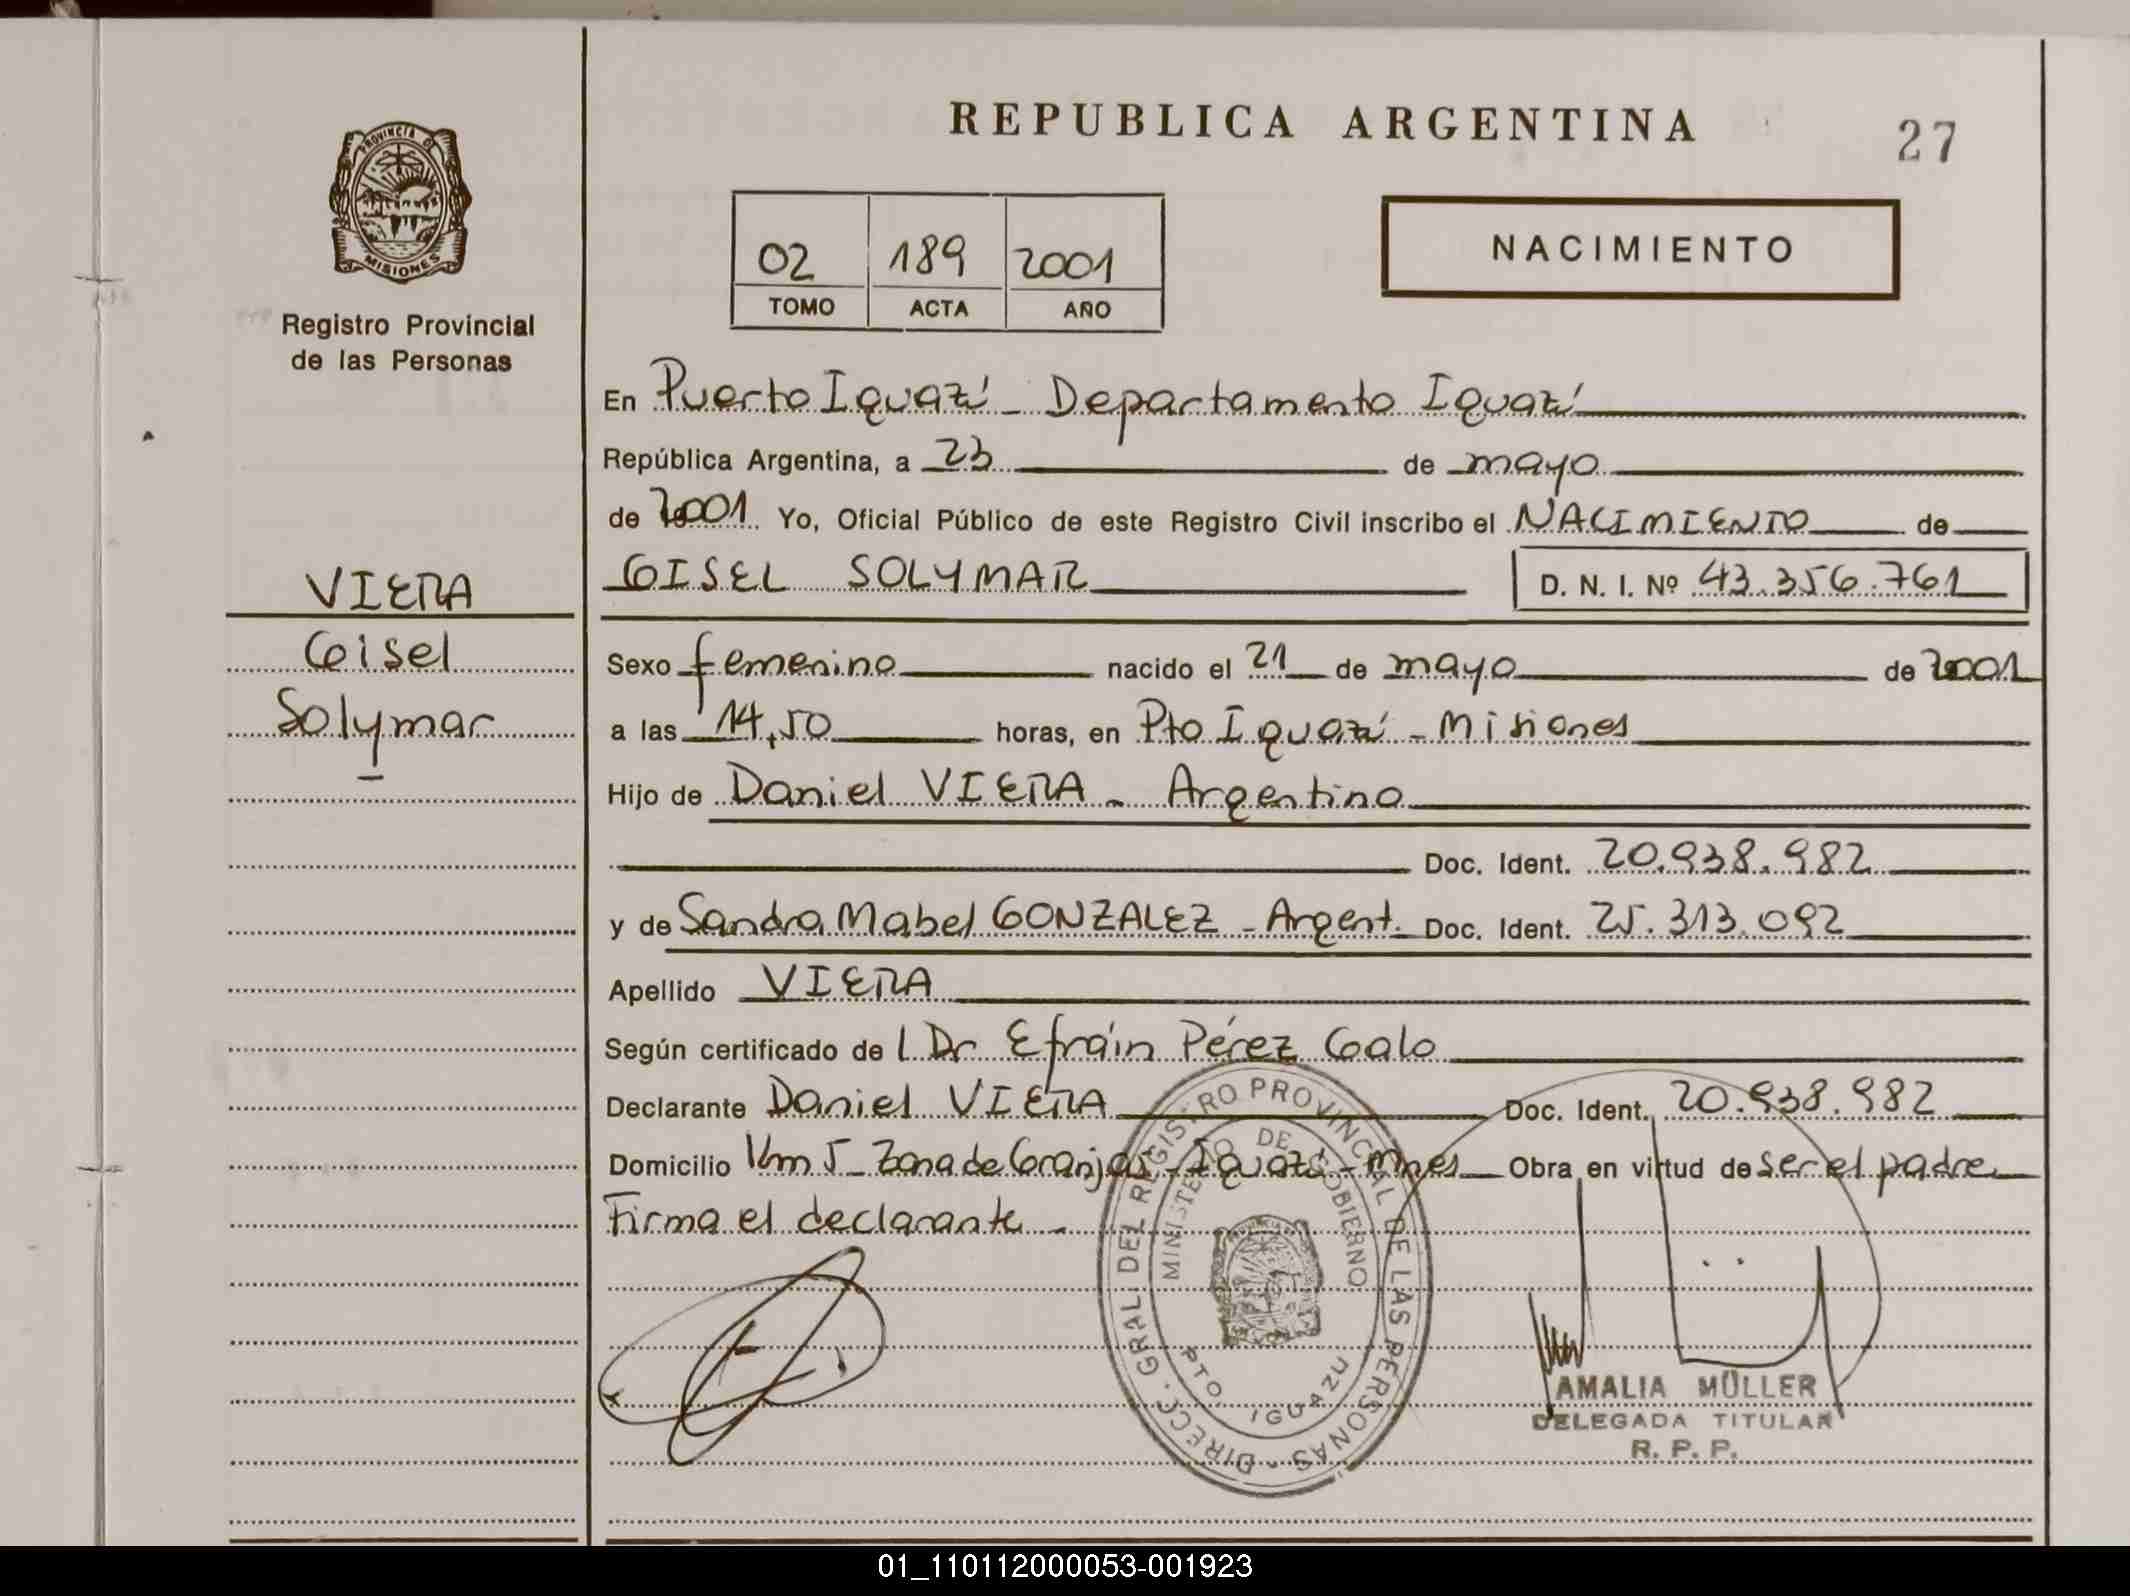 REPUBLICA ARGENTINA
27
PROVINCIA DE MISIONES
Registro Provincial
de las Personas
NACIMIENTO
02 189 2001
TOMO ACTA AÑO
En Puerto Iguazú - Departamento Iguazú
República Argentina, a 23 de mayo
de 2001 Yo, Oficial Público de este Registro Civil inscribo el NACIMIENTO de
GISEL SOLYMAR D. N. I. Nº 43.356.761
VIERA
Gisel
Solymar
Sexo femenino nacido el 21 de mayo de 2001
a las 14,50 horas, en Pto Iguazú - Misiones
Hijo de Daniel VIERA - Argentino
Doc. Ident. 20.938.982
y de Sandra Mabel GONZALEZ - Argent. Doc. Ident. 25.313.092
Apellido VIERA
Según certificado de l Dr Efraín Pérez Galo
Declarante Daniel VIERA Doc. Ident. 20.938.982
Domicilio Km 5 - Zona de Granjas - Iguazú - Mnes Obra en virtud de ser el padre
Firma el declarante -
DIRECC. GRAL. DEL REGISTRO PROVINCIAL DE LAS PERSONAS -
MINISTERIO DE GOBIERNO
PTO. IGUAZU
AMALIA MÜLLER
DELEGADA TITULAR
R. P. P.
01_110112000053-001923